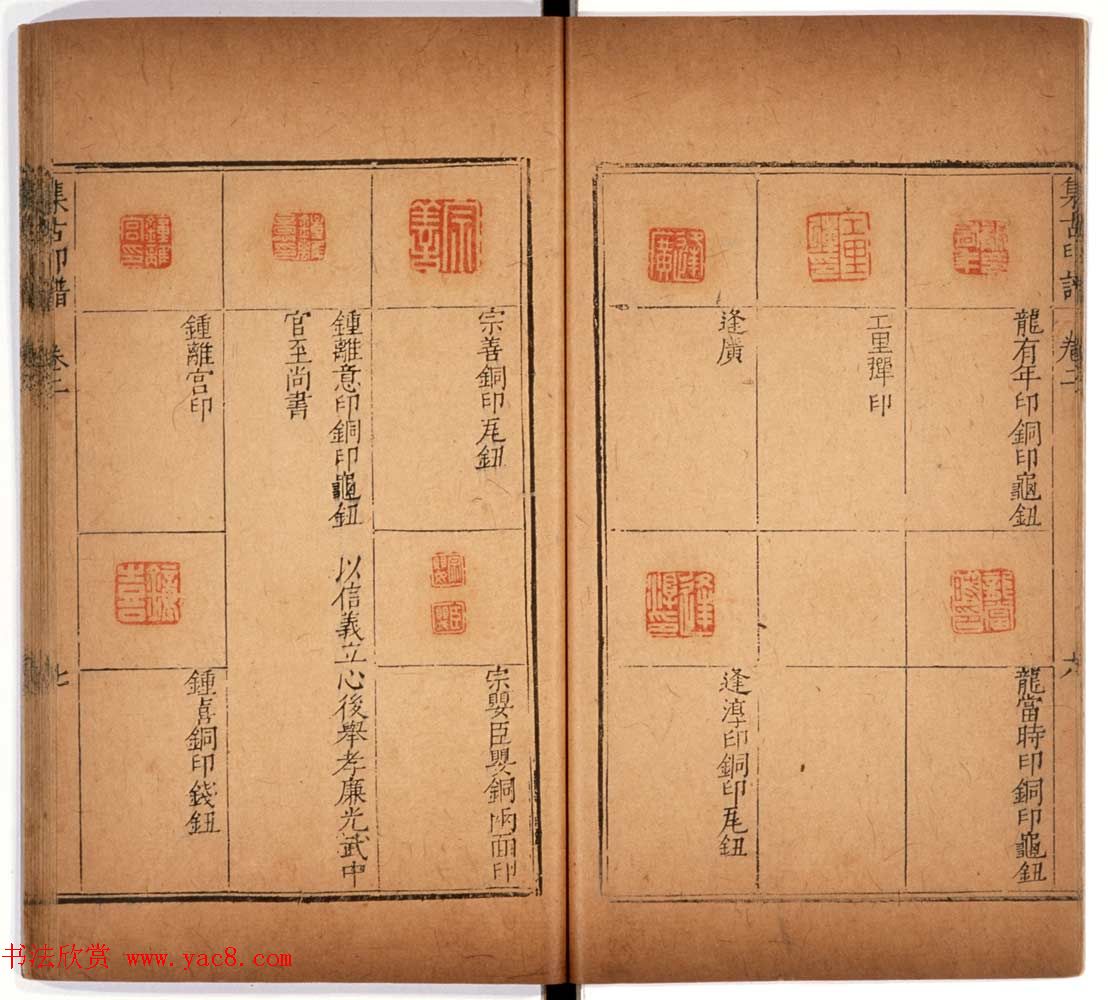 集古印譜
卷二
六
龍有年印銅印龜鈕
龍當時印銅印龜鈕
工里彈印
逢廣
逢淳印銅印瓦鈕
宗善銅印瓦鈕
宗嬰臣嬰銅兩面印
鍾離意印銅印龜鈕 以信義立心後舉孝廉光武中
官至尚書
鍾離宫印
鍾喜銅印錢鈕
集古印譜
卷二
七
书法欣赏 www.yac8.com